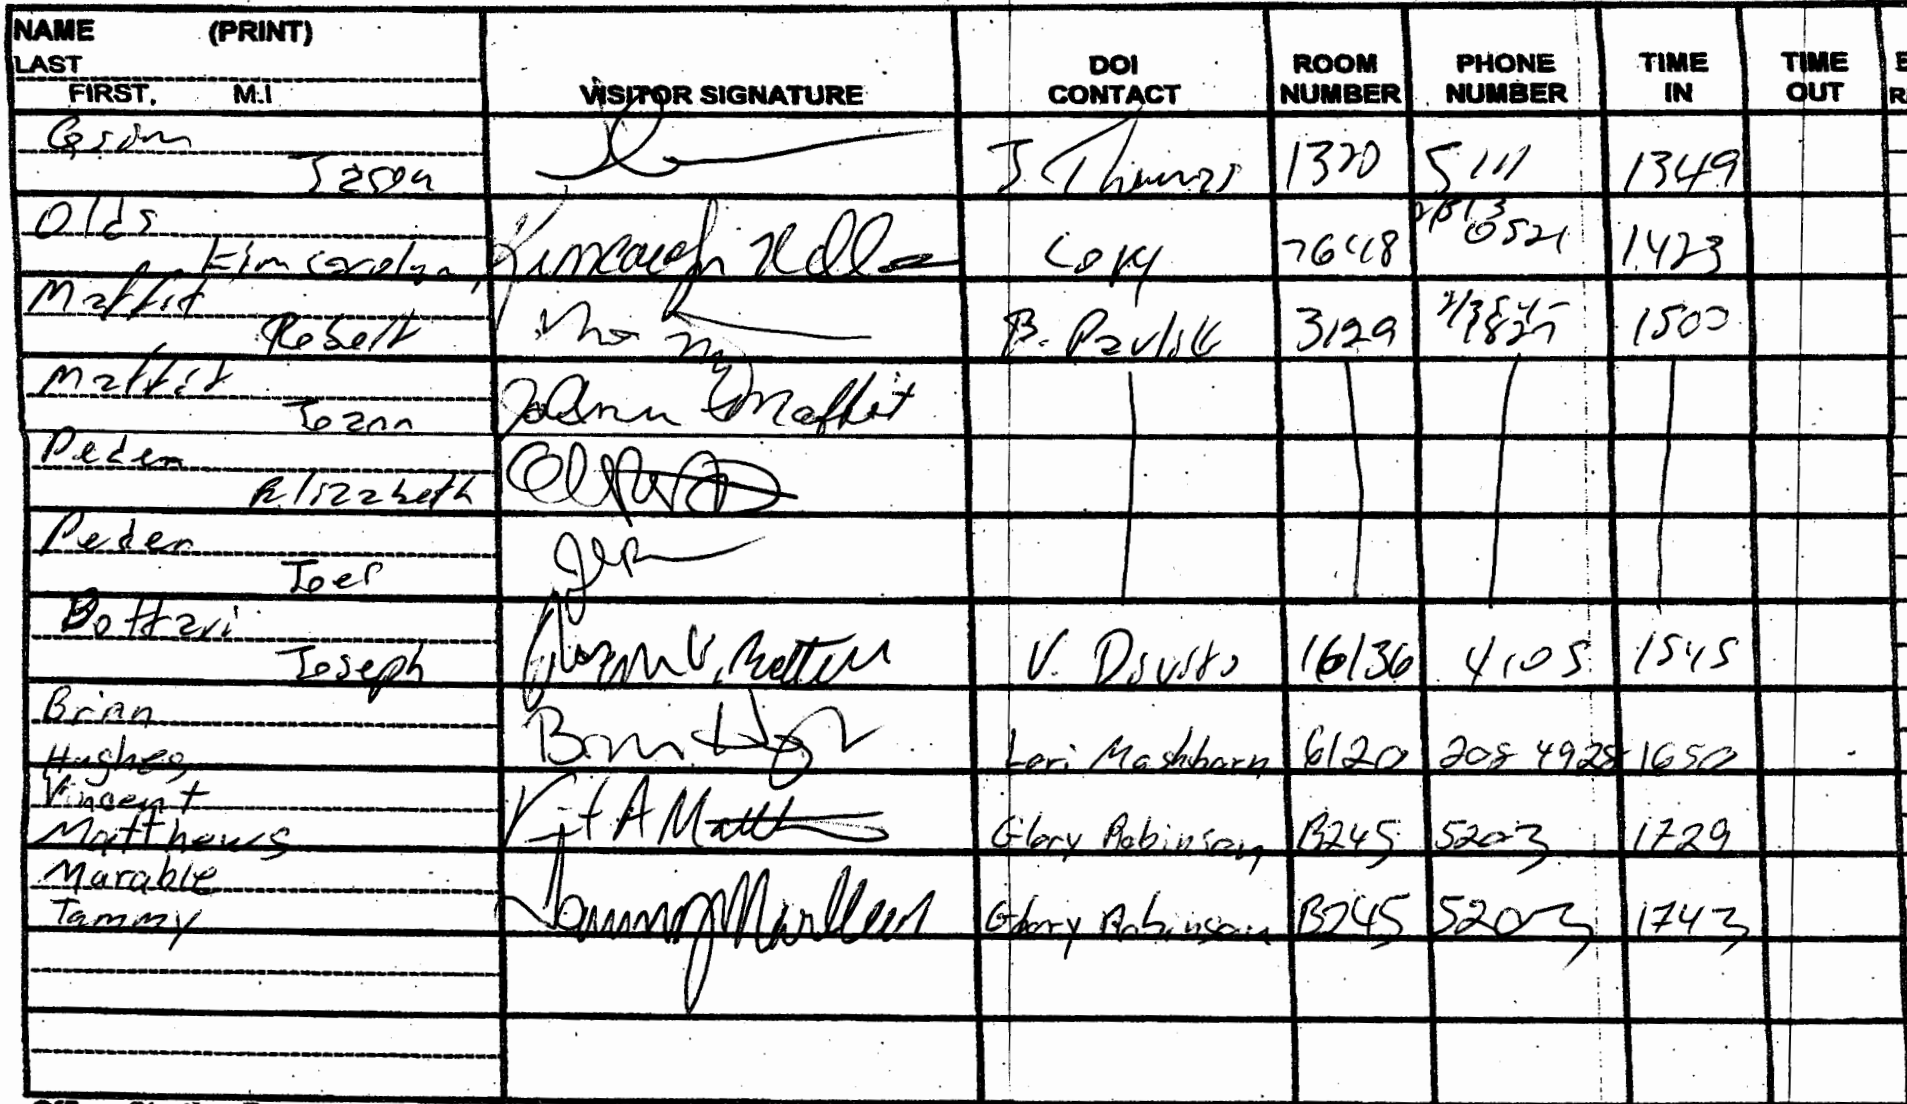 NAME (PRINT)
LAST
FIRST, M.I
VISITOR SIGNATURE
DOI
CONTACT
ROOM
NUMBER
PHONE
NUMBER
TIME
IN
TIME
OUT
Jason
J. Thomas 1320 5111 1349
Olds
Kimcarolyn
Cory 7648 1423
Maffit
Robert
B. Pavlik 3129 1500
Maffit
Joann
JoAnn Maffit
Peden
Elizabeth
Peden
Joel
Bottari
Joseph
16136 4105 1545
Brian
Hughes
Lori Mashburn 6120 208 4928 1650
Vincent
Matthews
Glory Robinson B245 5203 1729
Marable
Tammy
Glory Robinson B245 5203 1743